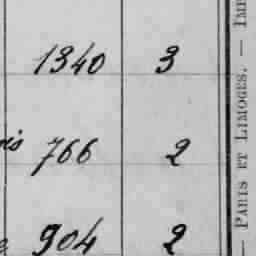 1340 3
766 2
904 2
— PARIS ET LIMOGES. — IMP